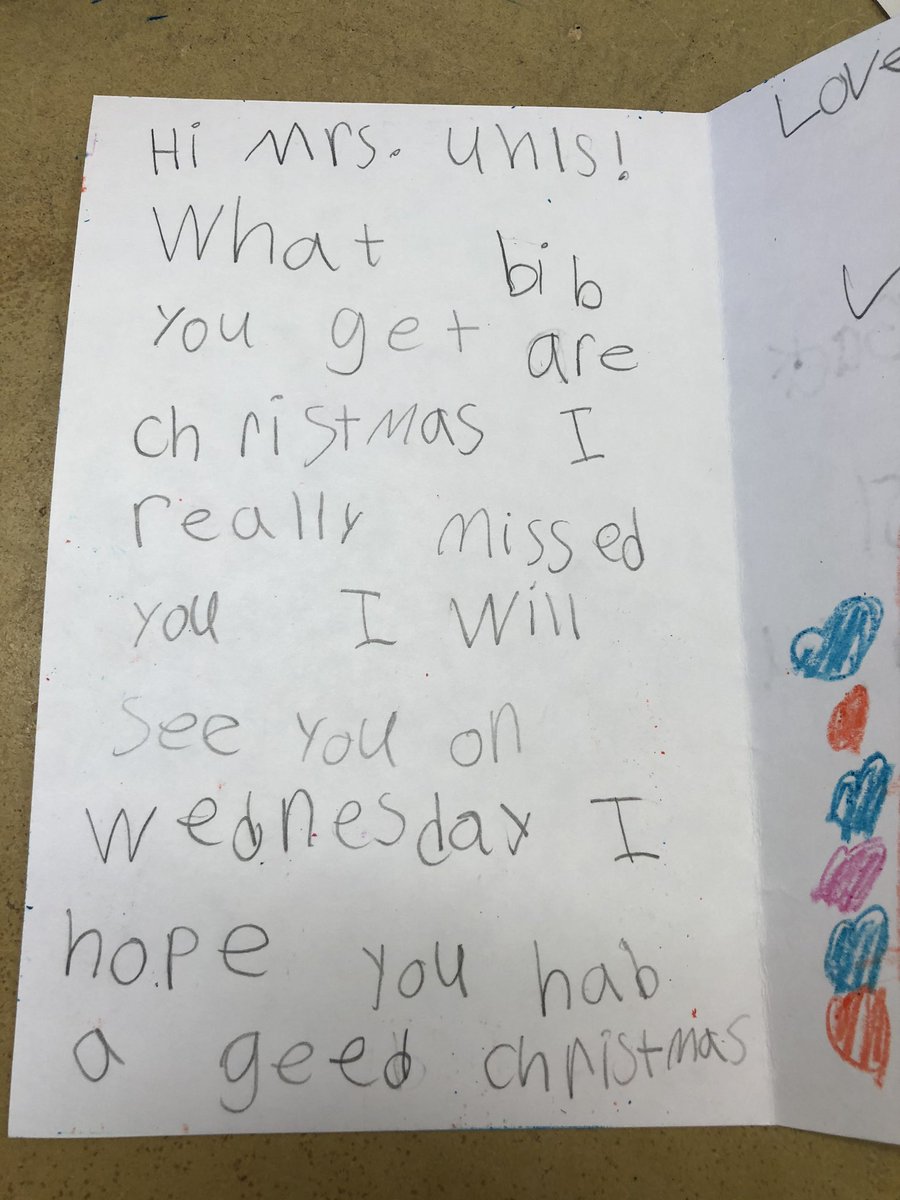 Hi Mrs. Uhls!
What bib
you get are
christmas I
really missed
you I will
see you on
Wednesday I
hope you hab
a geed christmas
Love